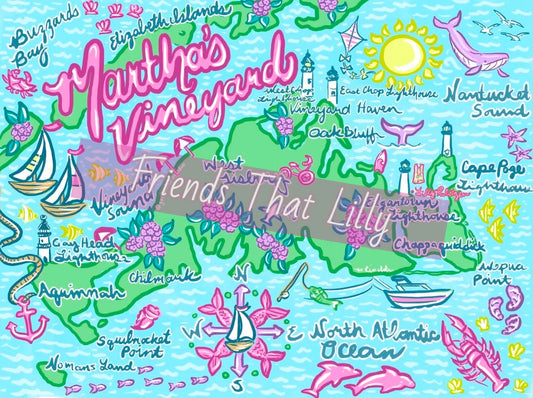 Buzzards
Bay
Elizabeth Islands
Martha's
Vineyard
West Chop
Lighthouse
East Chop Lighthouse
Vineyard Haven
Oak Bluff
Nantucket
Sound
Cape Poge
Lighthouse
West
Tisbury
Vineyard
Sound
Friends That Lilly
Lighthouse
Chappaquiddick
Gay Head
Lighthouse
Chilmark
Aquinnah
Point
Squibnocket
Point
Nomans Land
N
W
E
S
North Atlantic
Ocean